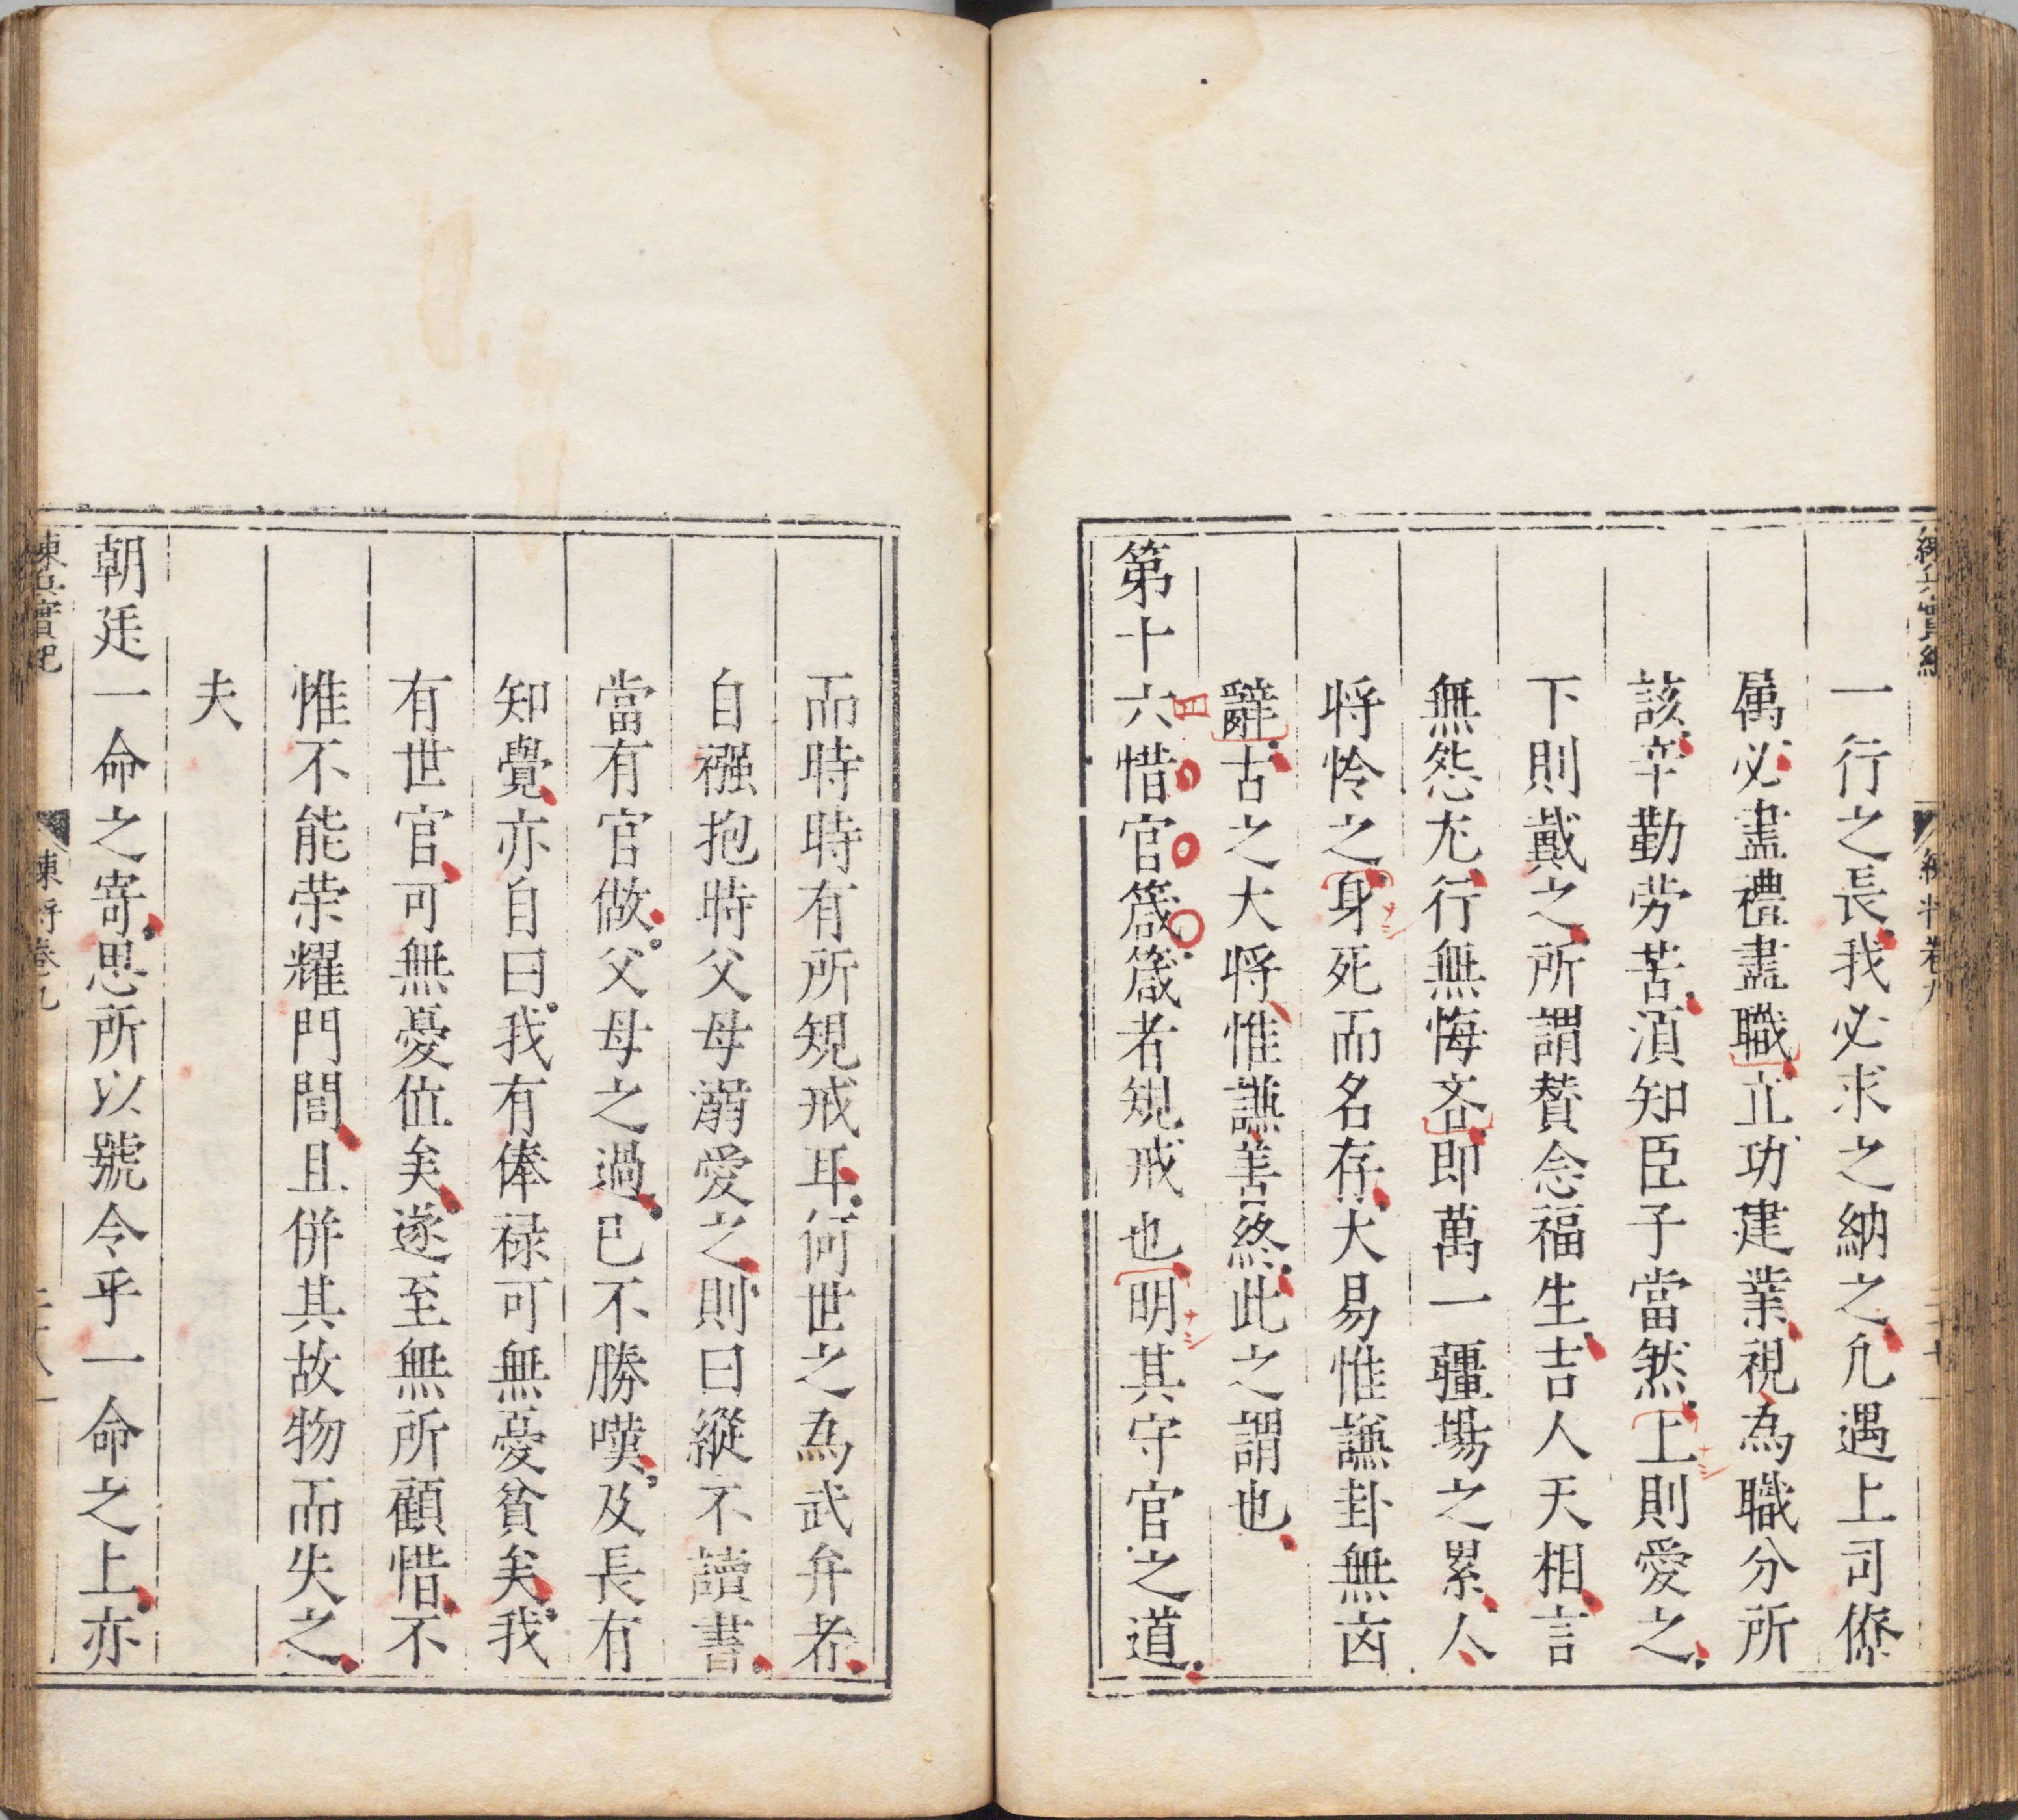 練兵實紀
練將卷九
一行之長我必求之納之凢遇上司僚
属必盡禮盡職立功建業視為職分所
該辛勤劳苦湏知臣子當然上則愛之
下則戴之所謂賛念福生吉人天相言
無怨尤行無悔吝即萬一疆埸之累人
将怜之身死而名存大易惟謙卦無凶
辭古之大将惟謙善終此之謂也
第十六惜官箴箴者規戒也明其守官之道
而時時有所規戒耳何世之為武弁者
自襁抱時父母溺愛之則曰縱不讀書
當有官做父母之過已不勝嘆及長有
知覺亦自曰我有俸禄可無憂貧矣我
有世官可無憂位矣遂至無所顧惜不
惟不能荣耀門閭且併其故物而失之
夫
朝廷一命之寄思所以號令乎一命之上亦
練兵實紀
練將卷九
二十八